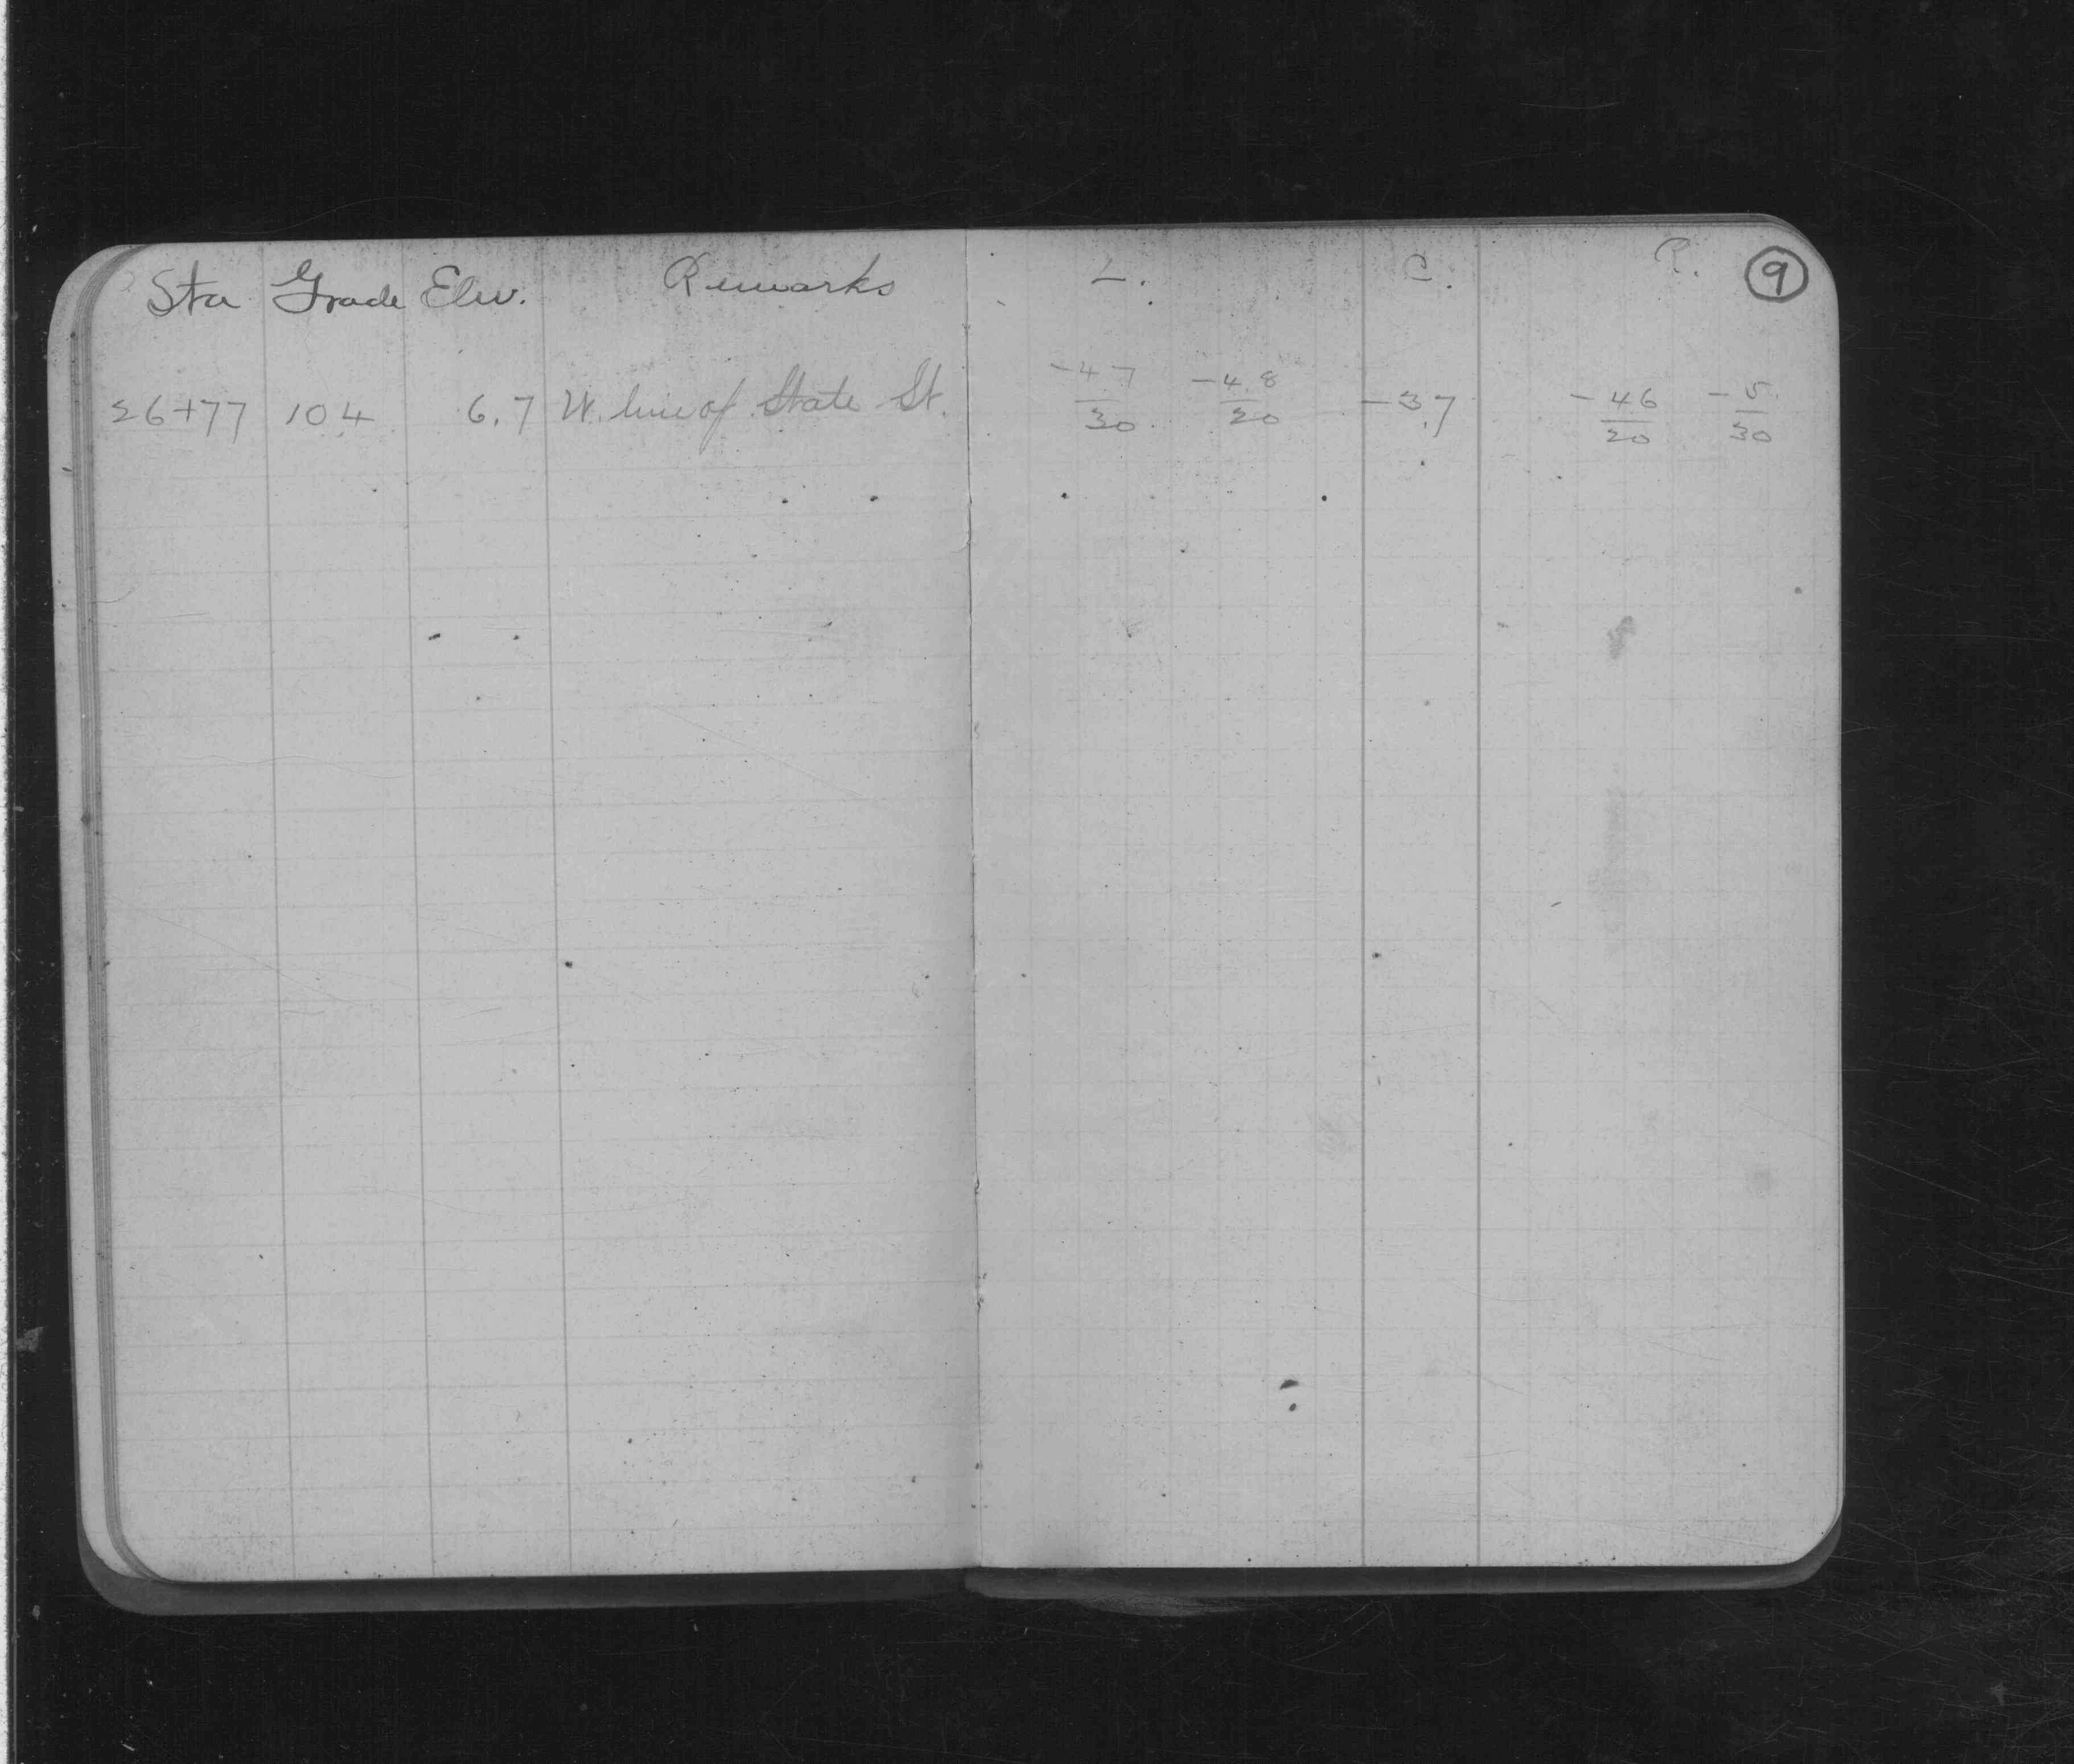 Sta Grade Elev. Remarks L. C. R. 9
26+77 104 6.7 W. line of State St. -4.7/30 -4.8/20 -3.7 -4.6/20 -5./30